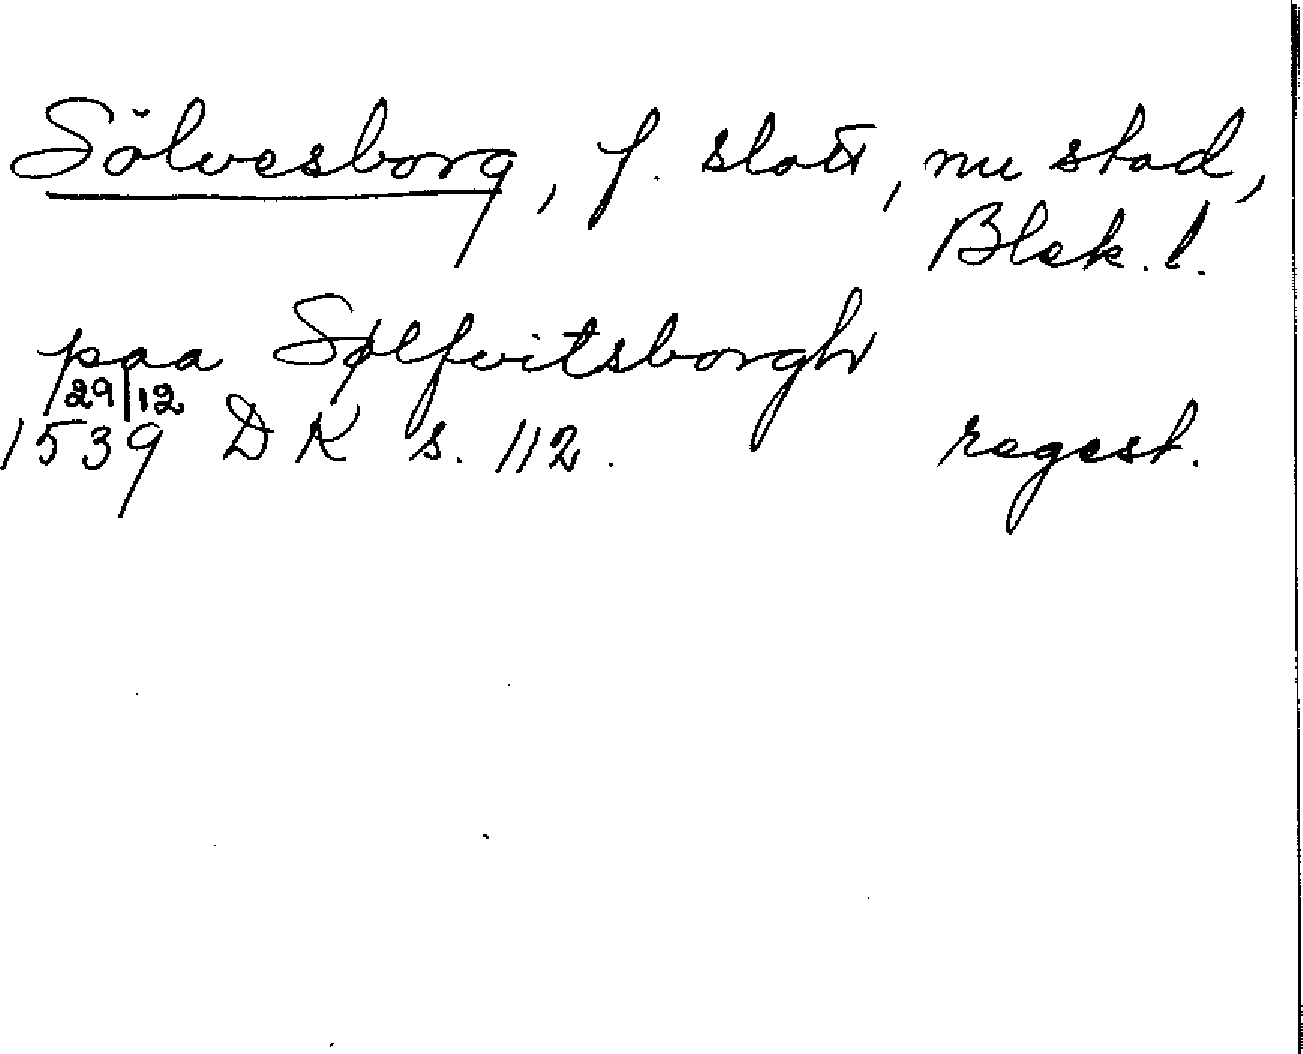 Sölvesborg, f. slott, nu stad,
Blek. l.
paa Sølfvitsborgh
29/12
1539 DK s. 112. regest.